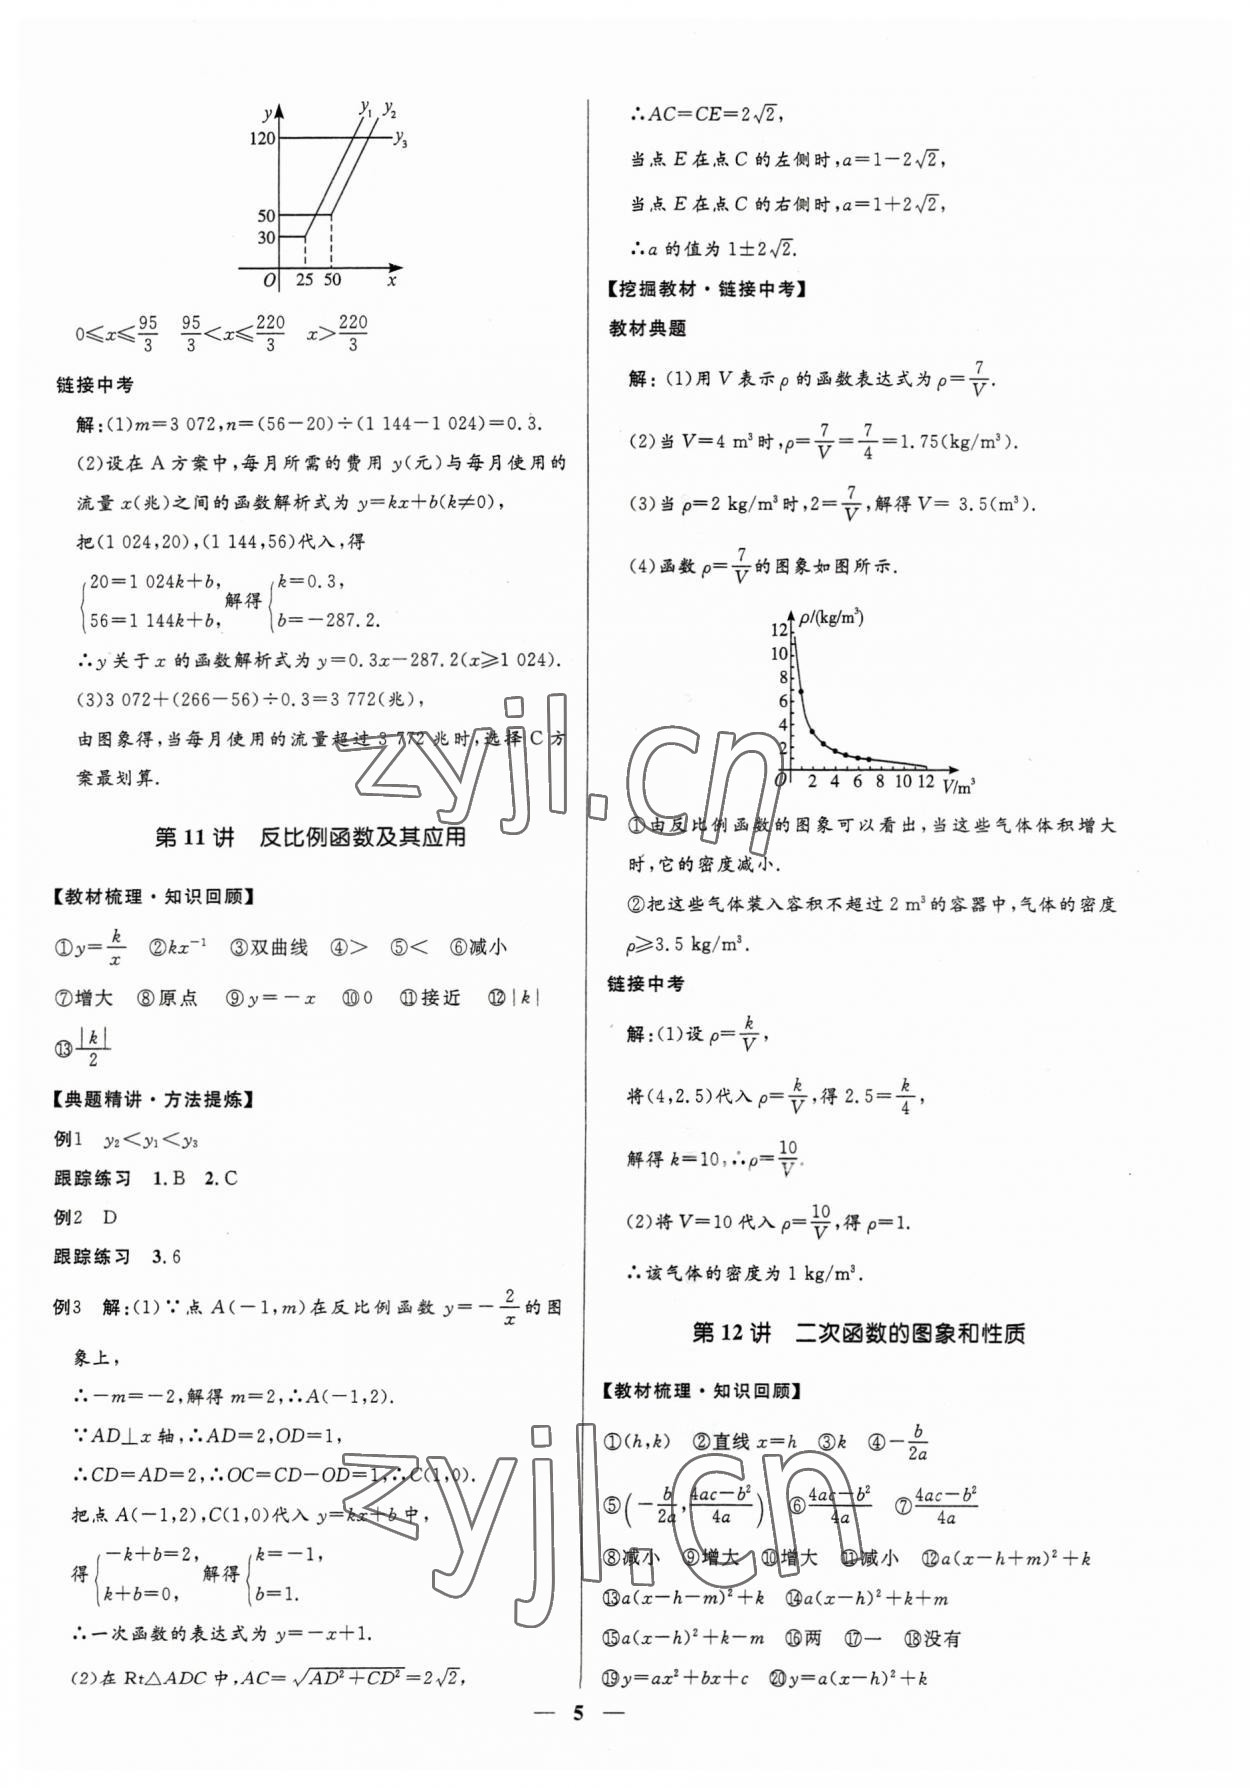 y y₁ y₂
120 y₃
50
30
O 25 50 x
0≤x≤95/3 95/3<x≤220/3 x>220/3
链接中考
解:(1)m=3 072,n=(56-20)÷(1 144-1 024)=0.3.
(2)设在 A 方案中,每月所需的费用 y(元)与每月使用的
流量 x(兆)之间的函数解析式为 y=kx+b(k≠0),
把(1 024,20),(1 144,56)代入,得
{20=1 024k+b, 56=1 144k+b, 解得{k=0.3, b=-287.2.
∴y 关于 x 的函数解析式为 y=0.3x-287.2(x≥1 024).
(3)3 072+(266-56)÷0.3=3 772(兆),
由图象得,当每月使用的流量超过 3 772 兆时,选择 C 方
案最划算.
第 11 讲 反比例函数及其应用
【教材梳理·知识回顾】
①y=k/x ②kx⁻¹ ③双曲线 ④> ⑤< ⑥减小
⑦增大 ⑧原点 ⑨y=-x ⑩0 ⑪接近 ⑫|k|
⑬|k|/2
【典题精讲·方法提炼】
例1 y₂<y₁<y₃
跟踪练习 1.B 2.C
例2 D
跟踪练习 3.6
例3 解:(1)∵点 A(-1,m)在反比例函数 y=-2/x的图
象上,
∴-m=-2,解得 m=2,∴A(-1,2).
∵AD⊥x 轴,∴AD=2,OD=1,
∴CD=AD=2,∴OC=CD-OD=1,∴C(1,0).
把点 A(-1,2),C(1,0)代入 y=kx+b 中,
得{-k+b=2, k+b=0, 解得{k=-1, b=1.
∴一次函数的表达式为 y=-x+1.
(2)在 Rt△ADC 中,AC=√(AD²+CD²)=2√2,
∴AC=CE=2√2,
当点 E 在点 C 的左侧时,a=1-2√2,
当点 E 在点 C 的右侧时,a=1+2√2,
∴a 的值为 1±2√2.
【挖掘教材·链接中考】
教材典题
解:(1)用 V 表示 ρ 的函数表达式为 ρ=7/V.
(2)当 V=4 m³时,ρ=7/V=7/4=1.75(kg/m³).
(3)当 ρ=2 kg/m³时,2=7/V,解得 V= 3.5(m³).
(4)函数 ρ=7/V的图象如图所示.
ρ/(kg/m³)
12
10
8
6
4
2
O 2 4 6 8 10 12 V/m³
①由反比例函数的图象可以看出,当这些气体体积增大
时,它的密度减小.
②把这些气体装入容积不超过 2 m³的容器中,气体的密度
ρ≥3.5 kg/m³.
链接中考
解:(1)设 ρ=k/V,
将(4,2.5)代入 ρ=k/V,得 2.5=k/4,
解得 k=10,∴ρ=10/V.
(2)将 V=10 代入 ρ=10/V,得 ρ=1.
∴该气体的密度为 1 kg/m³.
第 12 讲 二次函数的图象和性质
【教材梳理·知识回顾】
①(h,k) ②直线 x=h ③k ④-b/2a
⑤(-b/2a,(4ac-b²)/4a) ⑥(4ac-b²)/4a ⑦(4ac-b²)/4a
⑧减小 ⑨增大 ⑩增大 ⑪减小 ⑫a(x-h+m)²+k
⑬a(x-h-m)²+k ⑭a(x-h)²+k+m
⑮a(x-h)²+k-m ⑯两 ⑰一 ⑱没有
⑲y=ax²+bx+c ⑳y=a(x-h)²+k
— 5 —
zyjl.cn
zyjl.cn